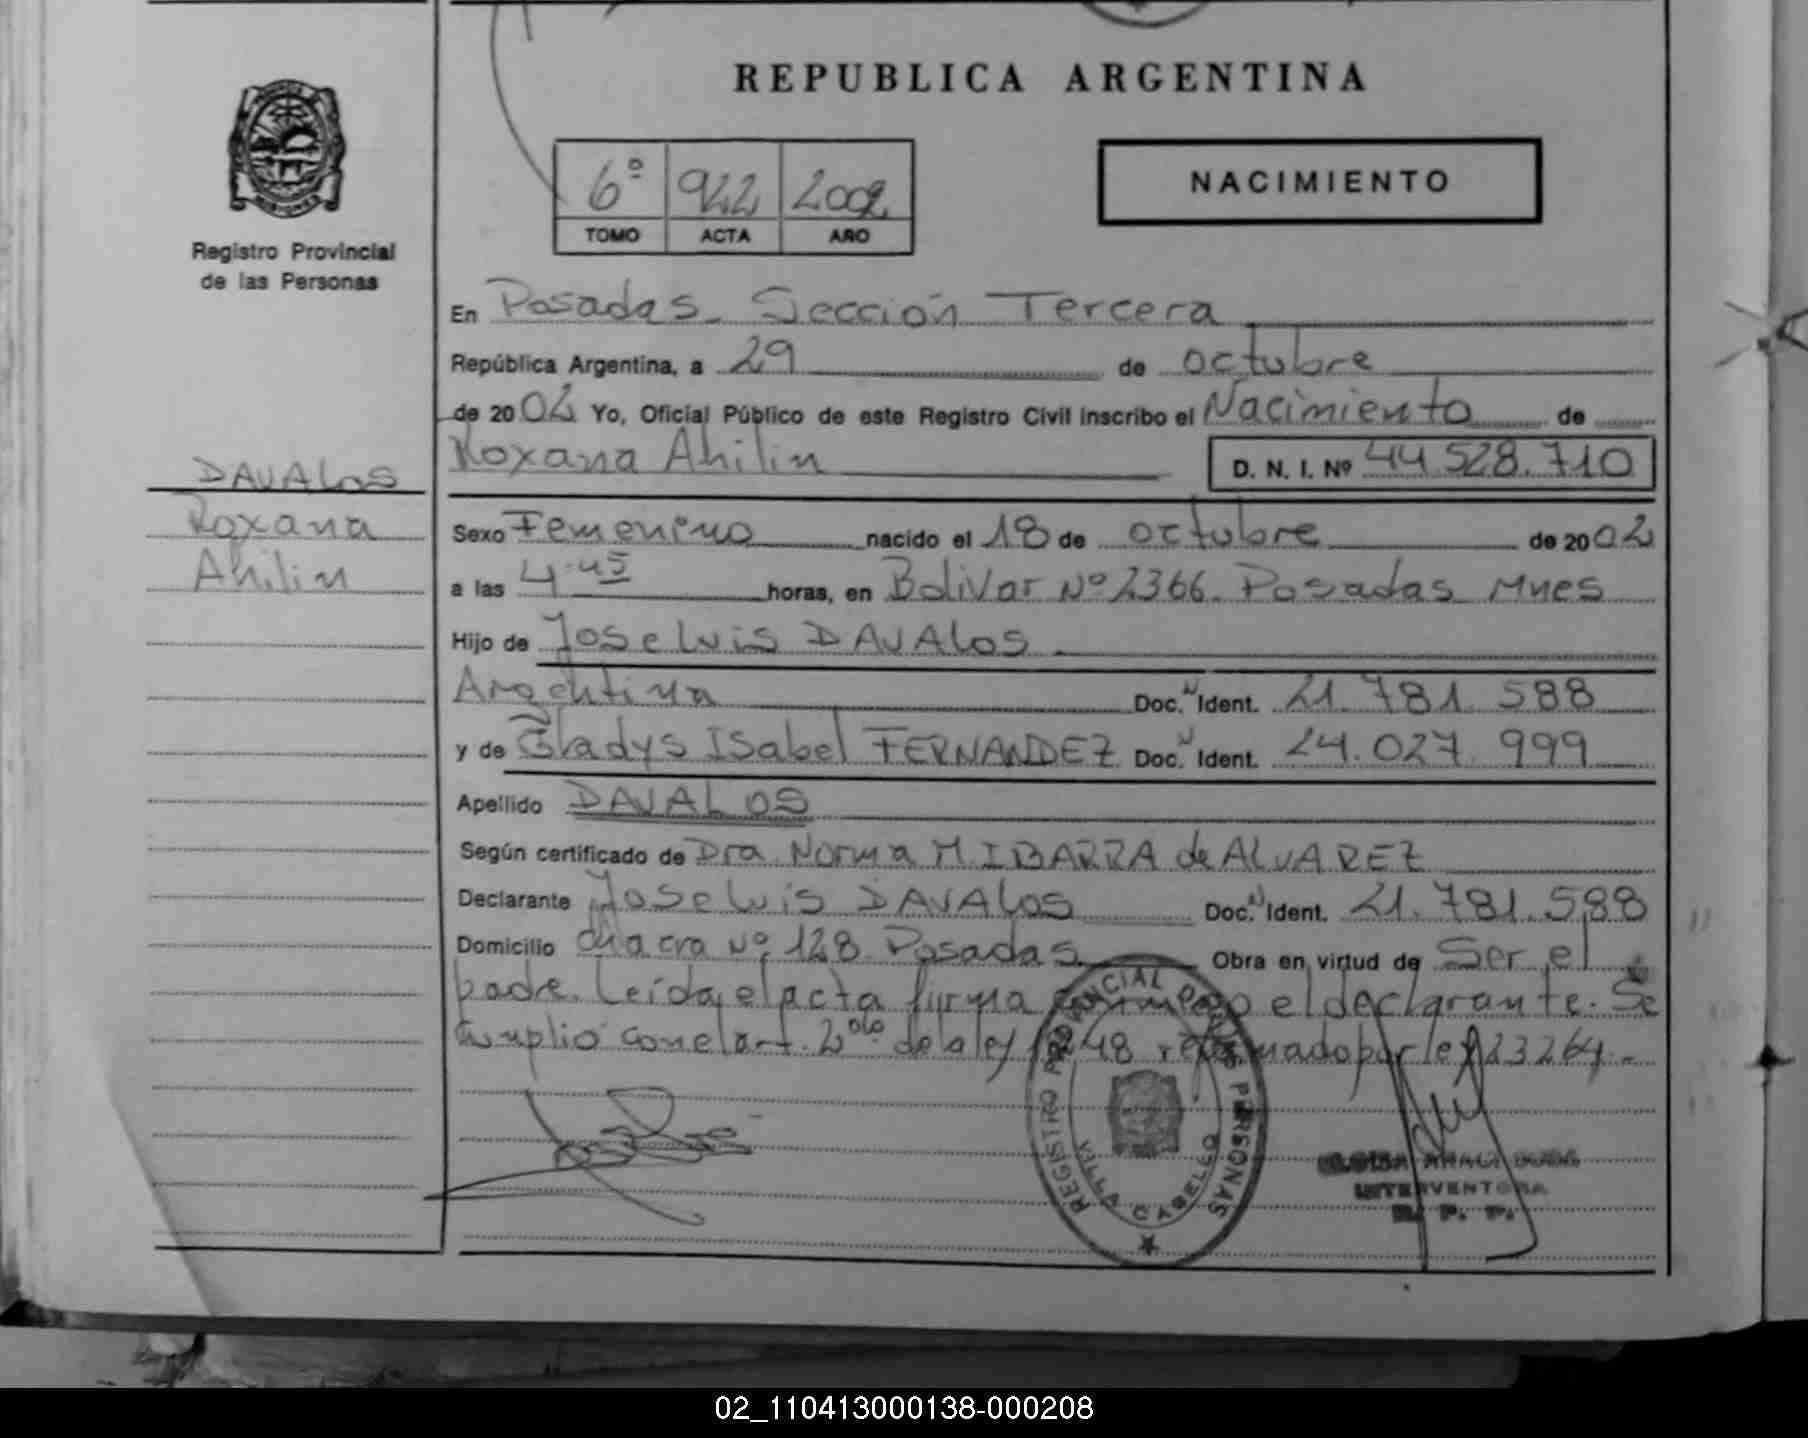 REPUBLICA ARGENTINA
NACIMIENTO
6º 922 2002
TOMO ACTA AÑO
Registro Provincial
de las Personas
DAVALOS
Roxana
Ahilin
En Posadas. Sección Tercera
República Argentina, a 29 de octubre
de 2002 Yo, Oficial Público de este Registro Civil inscribo el Nacimiento de
Roxana Ahilin D. N. I. Nº 44.528.710
Sexo Femenino nacido el 18 de octubre de 2002
a las 4:45 horas, en Bolivar Nº 2366. Posadas Mnes
Hijo de Jose Luis DAVALOS
Argentina Doc. N Ident. 21.781.588
y de Gladys Isabel FERNANDEZ Doc. N Ident. 24.027.999
Apellido DAVALOS
Según certificado de Dra. Norma M. IBARRA de ALVAREZ
Declarante Jose Luis DAVALOS Doc. N Ident. 21.781.588
Domicilio Chacra Nº 128. Posadas Obra en virtud de Ser el
padre. Leída el acta firma conmigo el declarante. Se
cumplió con el art. 2º de la ley 18248 reformado por ley 23264.-
REGISTRO PROVINCIAL DE LAS PERSONAS
VILLA CABELLO
INTERVENTORA
R. P. P.
02_110413000138-000208